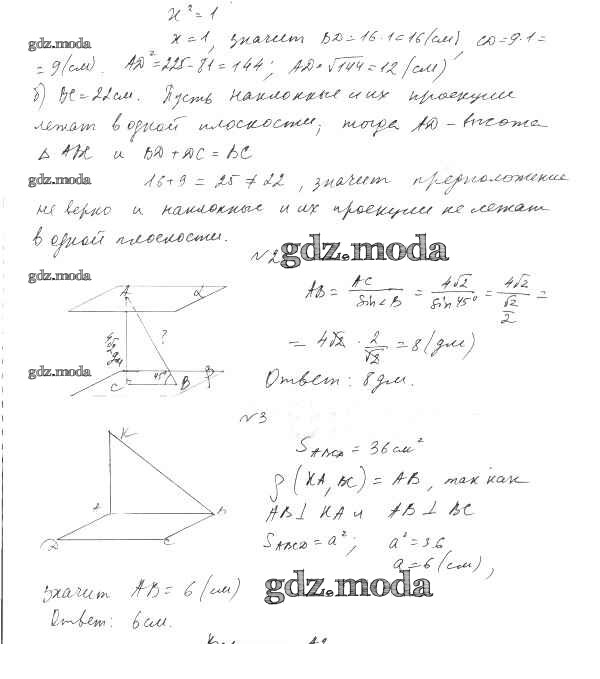 x² = 1
x = 1, значит BD = 16·1 = 16 (см), CD = 9·1 =
gdz.moda
= 9 (см). AD² = 225 - 81 = 144; AD = √144 = 12 (см)
б) BC = 22см. Пусть наклонные и их проекции
лежат в одной плоскости, тогда AD - высота
△ ABC и BD + DC = BC
gdz.moda 16 + 9 = 25 ≠ 22, значит предположение
не верно и наклонные и их проекции не лежат
в одной плоскости.
№2 gdz.moda
gdz.moda
A α
AB = AC / sin∠B = 4√2 / sin 45° = 4√2 / (√2 / 2) =
4√2 дм ?
= 4√2 · 2/√2 = 8 (дм)
gdz.moda
C 45° B β
Ответ: 8 дм.
№3
K
S ABCD = 36 см²
ρ (KA, BC) = AB, так как
AB ⊥ KA и AB ⊥ BC
S ABCD = a²; a² = 36
D C
a = 6 (см),
значит AB = 6 (см) gdz.moda
Ответ: 6 см.